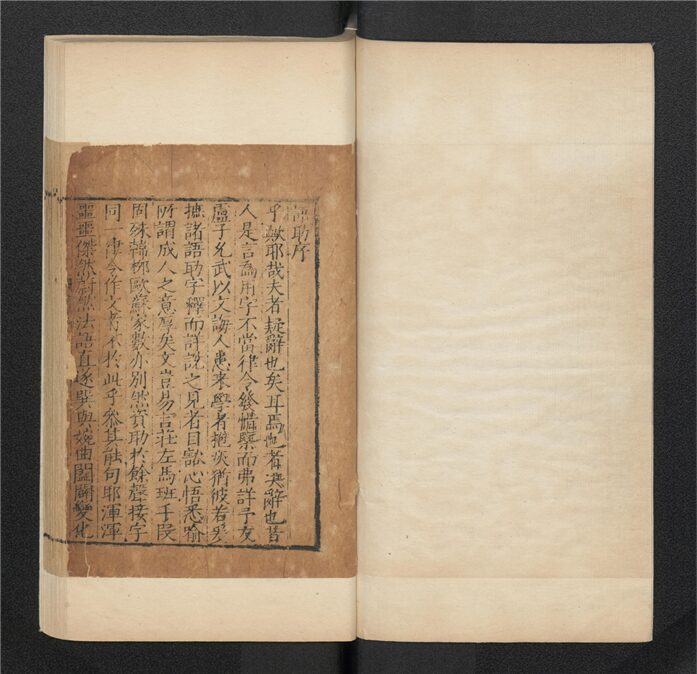 語助序
乎歟耶哉夫者疑辭也矣耳焉也者決辭也昔
人是言為用字不當律令發惜槩而弗詳予友
盧子允武以文誨人患來學者抱疚猶彼若爰
摭諸語助字釋而詳說之見者目豁心悟悉喻
所謂成人之意厚矣文豈易言莊左馬班手段
固殊韓柳歐蘇家數亦別然資助於餘聲接字
同一律令作文者不於此乎參其能句耶渾渾
噩噩傑然浩然法語直遂巽與婉曲闔闢變化